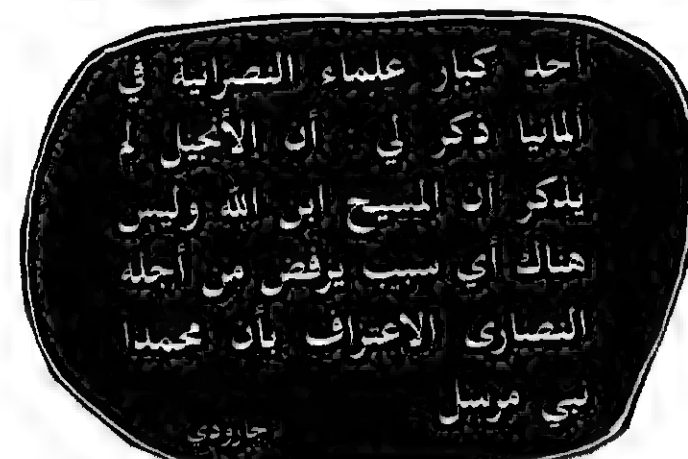 أحد كبار علماء النصرانية في
ألمانيا ذكر لي : أن الأنجيل لم
يذكر أن المسيح ابن الله وليس
هناك أي سبب يرفض من أجله
النصارى الاعتراف بأن محمدا
نبي مرسل
جارودي